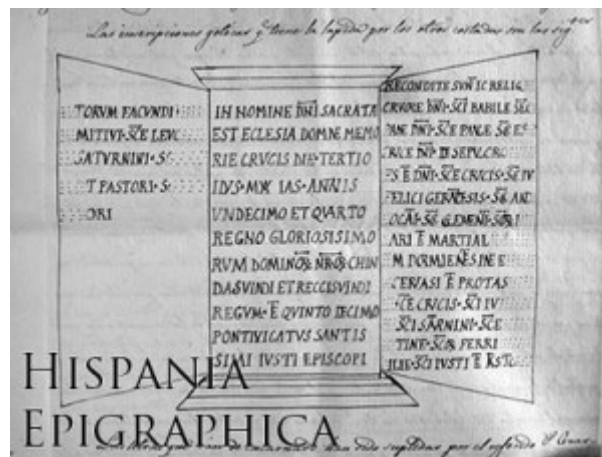 Las inscripciones goticas q. tiene la lapida por los otros costados son las sig.tes
TORVM FACVNDI
MITIVI·SCE LEVC
SATVRNINI·S
T PASTORI·S
ORI
IH NOMINE DNI SACRATA
EST ECLESIA DOMNE MEMO
RIE CRVCIS DIE TERTIO
IDVS·MAIAS·ANNIS
VNDECIMO ET QVARTO
REGNO GLORIOSISIMO
RVM DOMINOR NROR CHIN
DASVINDI ET RECCISVINDI
REGVM·E QVINTO DECIMO
PONTIVICATVS SANTIS
SIMI IVSTI EPISCOPI
RECONDITE SVN IC RELIQ
CRVORE DNI·SCI BABILE
PANE DNI·SCE PAVLE
CRVCE DNI· D SEPVLCRO
S E DNI·SCE CRVCIS·SCI IV
FELICI GERNESIS·SCI AND
CLEMENTI
ARI E MARTIAL
M DORMIENES INE
CERVASI E PROTAS
CE CRVCIS·SCI IV
SCI SARNINI·SCE
TINE·SCOR FERRI
ILIE·SCI IVSTI E
HISPANIA
EPIGRAPHICA
por el referido